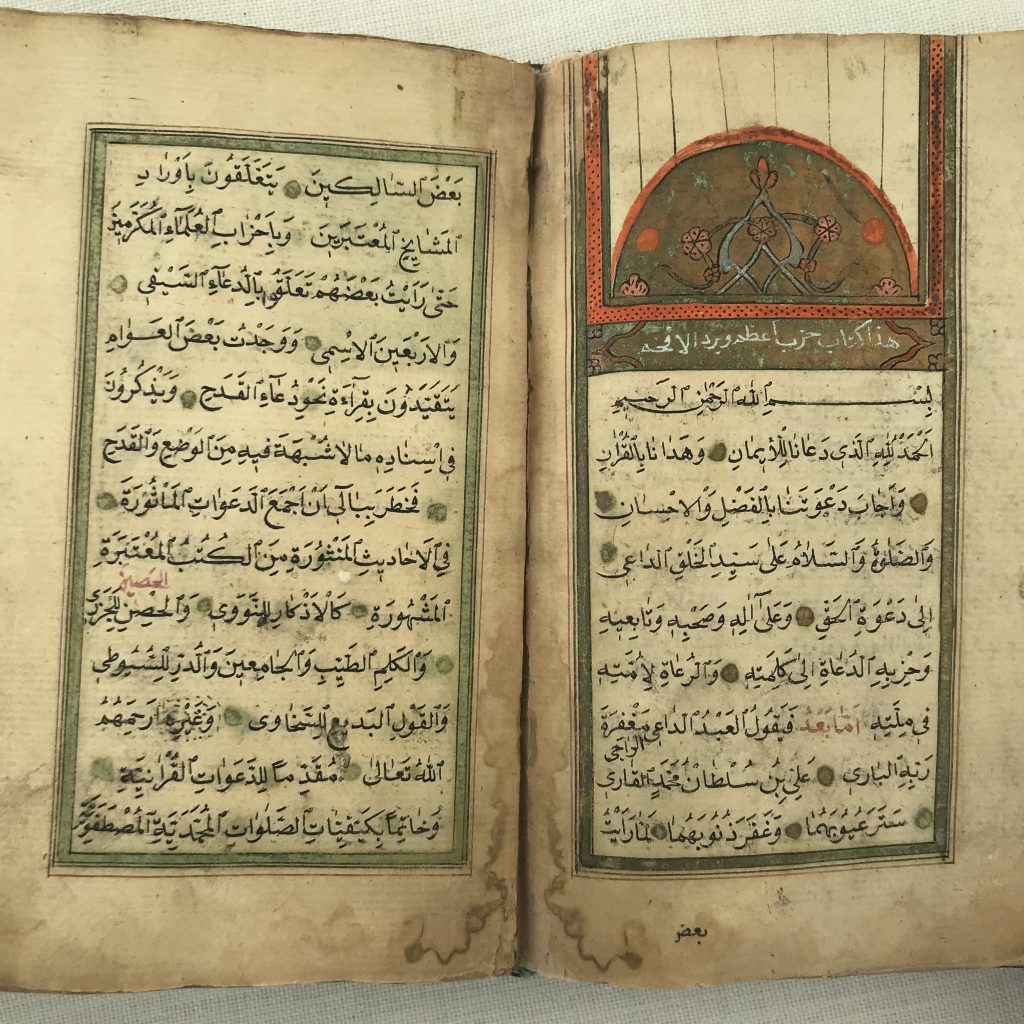 هذا كتاب حزب اعظم و برد الافخم
بِسْمِ اللهِ الرَّحْمٰنِ الرَّحِيمِ
اَلْحَمْدُ لِلّٰهِ الَّذِي دَعَانَا لِلْاِيمَانِ وَهَدَانَا بِالْقُرْاٰنِ
وَاَجَابَ دَعْوَتَنَا بِالْفَضْلِ وَالْاِحْسَانِ
وَالصَّلٰوةُ وَالسَّلَامُ عَلٰى سَيِّدِ الْخَلْقِ الدَّاعِي
اِلٰى دَعْوَةِ الْحَقِّ وَعَلٰٓى اٰلِهِ وَصَحْبِهِ وَتَابِعِيهِ
وَحِزْبِهِ الدُّعَاةِ اِلٰى كَلِمَتِهِ وَالرُّعَاةِ لِاُمَّتِهِ
فِي مِلَّتِهِ اَمَّا بَعْدُ فَيَقُولُ الْعَبْدُ الدَّاعِي الراجي مَغْفِرَةَ
رَبِّهِ الْبَارِي عَلِيُّ بْنُ سُلْطَانْ مُحَمَّدٍ الْقَارِي
سَتَرَ عُيُوبَهُمَا وَغَفَرَ ذُنُوبَهُمَا لَمَّا رَاَيْتُ
بعض
بَعْضَ السَّالِكِينَ يَتَعَلَّقُونَ بِاَوْرَادِ
الْمَشَايِخِ الْمُعْتَبَرِينَ وَبِاَحْزَابِ الْعُلَمَاءِ الْمُكَرَّمِينَ
حَتّٰى رَاَيْتُ بَعْضَهُمْ تَعَلَّقُوا بِالدُّعَاءِ السَّيْفِي
وَالْاَرْبَعِينَ الْاِسْمِي وَوَجَدْتُ بَعْضَ الْعَوَامِ
يَتَقَيَّدُونَ بِقِرَاءَةِ نَحْوِ دُعَاءِ الْقَدَحِ وَيَذْكُرُونَ
فِي اِسْنَادِهِ مَا لَا شُبْهَةَ فِيهِ مِنَ الْوَضْعِ وَالْقَدَحِ
فَخَطَرَ بِبَالِي اَنْ اَجْمَعَ الدَّعَوَاتِ الْمَاْثُورَةَ
فِي الْاَحَادِيثِ الْمَنْثُورَةِ مِنَ الْكُتُبِ الْمُعْتَبَرَةِ
الْمَشْهُورَةِ كَالْاَذْكَارِ لِلنَّوَوِي وَالْحِصْنِ الحصين لِلْجَزَرِي
وَالْكَلِمِ الطَّيِّبِ وَالْجَامِعَيْنِ وَالدُّرِّ لِلسُّيُوطِي
وَالْقَوْلِ الْبَدِيعِ لِلسَّخَاوِي وَغَيْرِهَا رَحِمَهُمُ
اللهُ تَعَالٰى مُقَدِّمًا لِلدَّعَوَاتِ الْقُرْاٰنِيَّةِ
وَخَاتِمًا بِكَيْفِيَّاتِ الصَّلَوَاتِ الْمُحَمَّدِيَّةِ الْمُصْطَفَوِيَّةِ